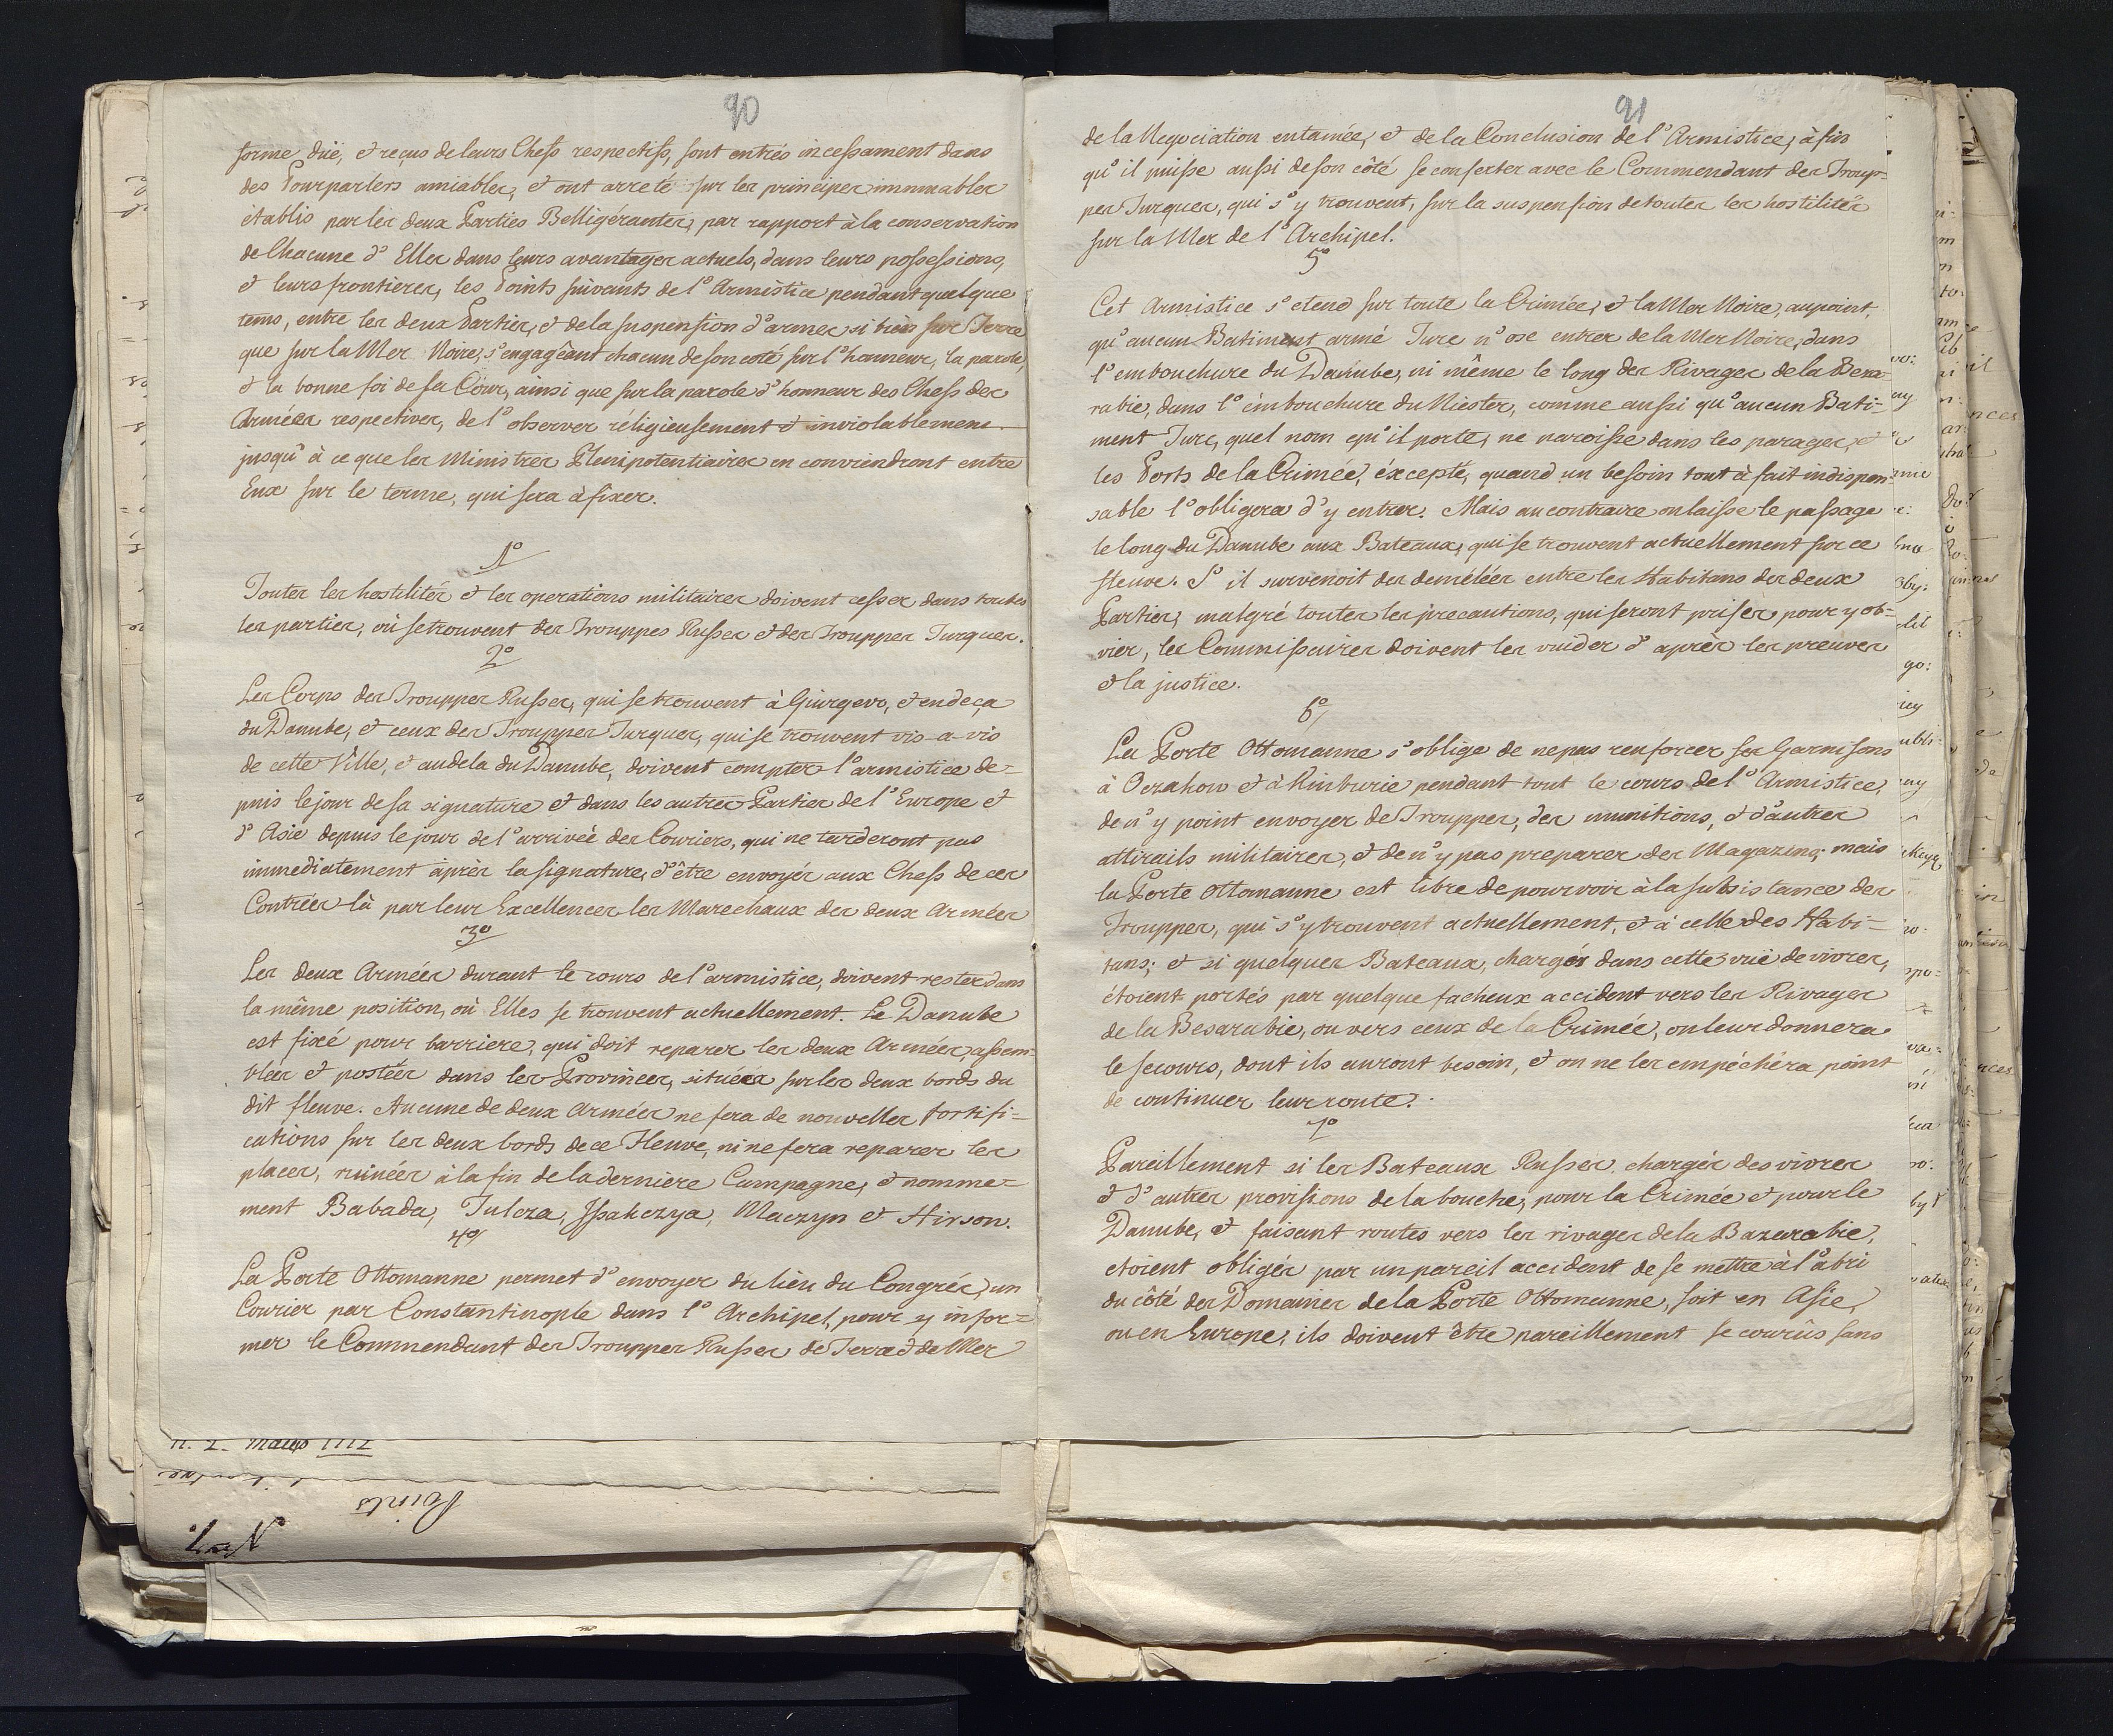 90
forme düe, et reçus de leurs Chefs respectifs, sont entrés incessament dans
des Pourparlers amiables, et ont arreté sur les principes immuables
établis par les deux Parties Belligérantes, par rapport à la conservation
de Chacune d'Elles dans leurs avantages actuels, dans leurs possessions,
et leurs frontieres, les Points suivants de l'Armistice pendant quelque
tems, entre les deux Parties, et de la suspension d'armes si bien sur Terre
que sur la Mer Noire, s'engagèant chacun de son coté sur l'honneur, la parole,
et la bonne foi de sa Cour, ainsi que sur la parole d'honneur des Chefs des
Armées respectives, de l'observer réligieusement et inviolablement
jusqu'à ce que les Ministres Plenipotentiaires en conviendront entre
Eux sur le terme, qui sera à fixer.
1o
Toutes les hostilités et les operations militaires doivent cesser dans toutes
les parties, où se trouvent des Trouppes Russes et des Trouppes Turques.
2o
Les Corps des Trouppes Russes, qui se trouvent à Giurgevo, et en deça
du Danube, et ceux des Trouppes Turques, qui se trouvent vis-a-vis
de cette Ville, et audela du Danube, doivent compter l'armistice de=
puis le jour de sa signature et dans les autres Parties de l'Europe et
d'Asie depuis le jour de l'arriveé des Couriers, qui ne tarderont pas
immediatement àprès la signature, d'être envoyés aux Chefs de ces
Contrées là par leur Excellences les Marechaux des deux Armées
3o
Les deux Armées durant le cours de l'armistice, doivent rester dans
la même position, où Elles se trouvent actuellement. Le Danube
est fixé pour barriere, qui doit reparer les deux Armées, assem=
blées et postées dans les Provinces, situées sur les deux bords du
dit fleuve. Aucune de deux Armées ne fera de nouvelles fortifi=
cations sur les deux bords de ce Fleuve, ni ne fera reparer les
places, ruinées à la fin de la dernière Campagne, et nomme=
ment Babada, Tulcza, Isakczya, Maczyn et Hirson.
4o
La Porte Ottomanne permet d'envoyer du lieu du Congrés, un
Courier par Constantinople dans l'Archipel, pour y infor=
mer le Commendant des Trouppes Russes de Terre et de Mer
n. 2. Martij 1772
Points
91
de la Negociation entamée, et de la Conclusion de l'Armistice, à fin
qu'il puisse aussi de son côté se conserter avec le Commendant des Troup=
pes Turques, qui s'y trouvent, sur la suspension de toutes les hostilités
sur la Mer de l'Archipel.
5o
Cet Armistice s'etend sur toute la Crimée, et la Mer Noire, au point,
qu'aucun Batiment armé Turc n'ose entrer de la Mer Noire, dans
l'embouchure du Danube, ni même le long des Rivages de la Besa=
rabie, dans l'èmbouchure du Niester, comme aussi qu'aucun Bati=
ment Turc, quel nom qu'il porte, ne paroisse dans les parages, et
les Ports de la Crimée, éxcepté, quand un besoin tout à fait indispen=
sable l'obligera d'y entrer. Mais au contraire on laisse le passage
le long du Danube aux Bateaux, qui se trouvent actuellement sur ce
fleuve. S'il survenoit des demélées entre les Habitans des deux
Parties, malgré toutes les précautions, qui seront prises pour y ob=
vier, les Commissaires doivent les vuider d'après les preuves
et la justice.
6o
La Porte Ottomanne s'oblige de ne pas renforcer ses Garnisons
à Oczakow et à Kinburie pendant tout le cours de l'Armistice,
de n'y point envoyer de Trouppes, des munitions, et d'autres
attirails militaires, et de n'y pas preparer des Magazins; mais
la Porte Ottomanne est libre de pourvoir à la subsistance des
Trouppes, qui s'y trouvent actuellement, et à celle des Habi=
tans; et si quelques Bateaux, chargés dans cette vüe de vivres,
étoient portés par quelque facheux accident vers les Rivages
de la Besarabie, ou vers ceux de la Crimée, on leur donnera
le secours, dont ils auront besoin, et on ne les empéchéra point
de continuer leur route.
7o
Pareillement si les Bateaux Russes, chargés des vivres
et d'autres provisions de la bouche, pour la Crimée et pour le
Danube, et faisant routes vers les rivages de la Bazarabie,
etoient obligés par un pareil accident de se mettre à l'abri
du côté des Domaines de la Porte Ottomanne, soit en Asie,
ou en Europe, ils doivent être pareillement secourûs sans